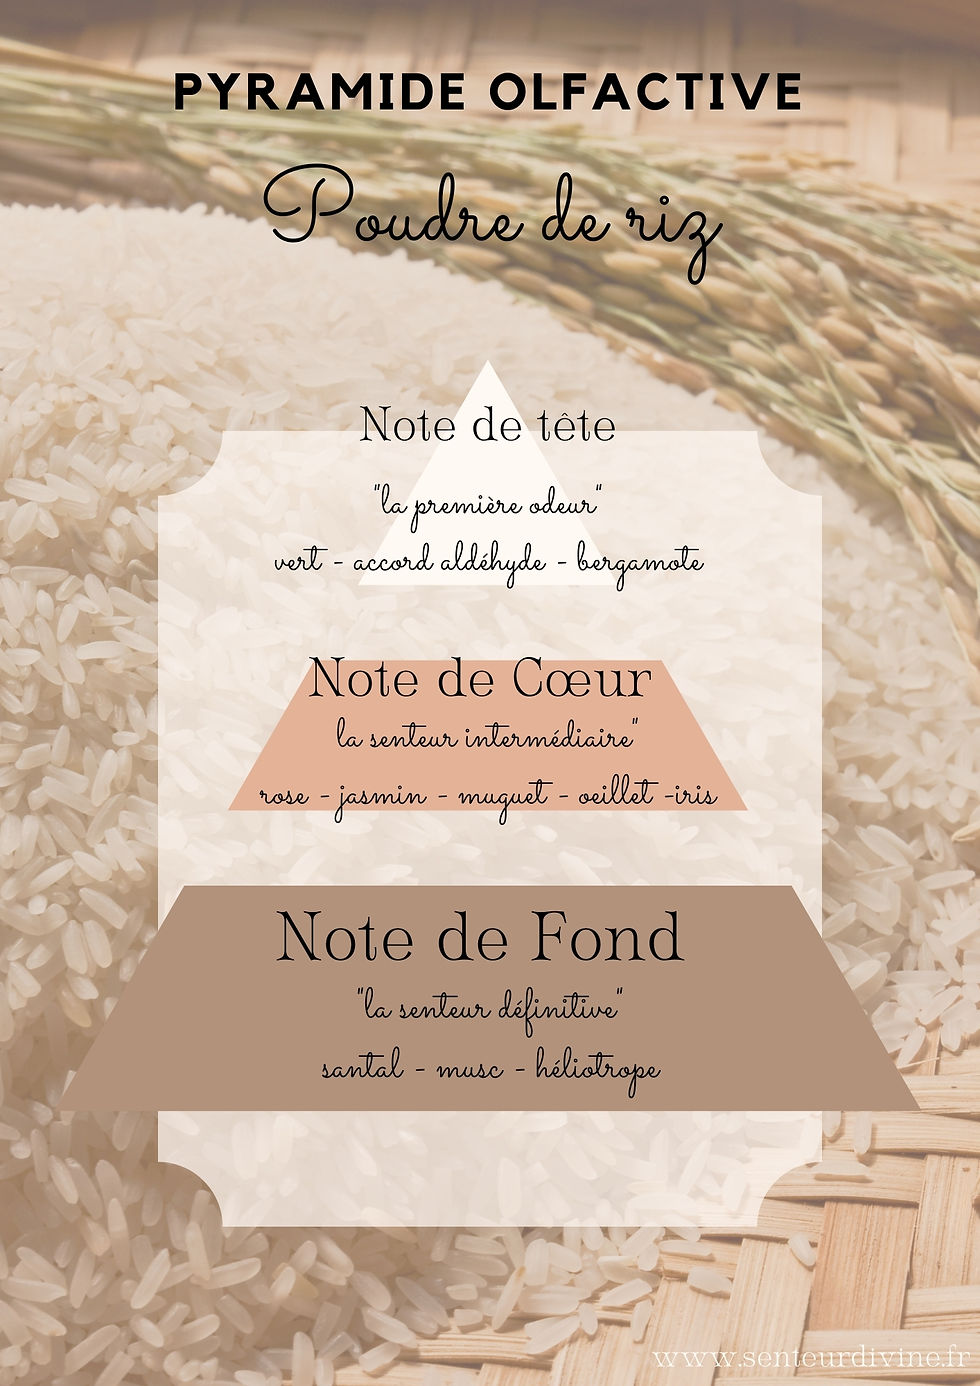 PYRAMIDE OLFACTIVE
Poudre de riz
Note de tête
"la première odeur"
vert - accord aldéhyde - bergamote
Note de Cœur
la senteur intermédiaire"
rose - jasmin - muguet - oeillet -iris
Note de Fond
"la senteur définitive"
santal - musc - héliotrope
www.senteurdivine.fr